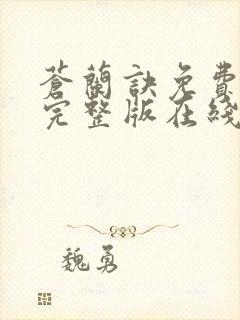 蒼蘭訣免費
完整版在綫
魏勇